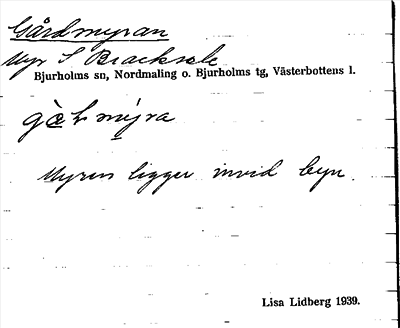 Gårdmyran
Myr S Bracksele
Bjurholms sn, Nordmaling o. Bjurholms tg, Västerbottens l.
myra
Myren ligger invid byn.
Lisa Lidberg 1939.